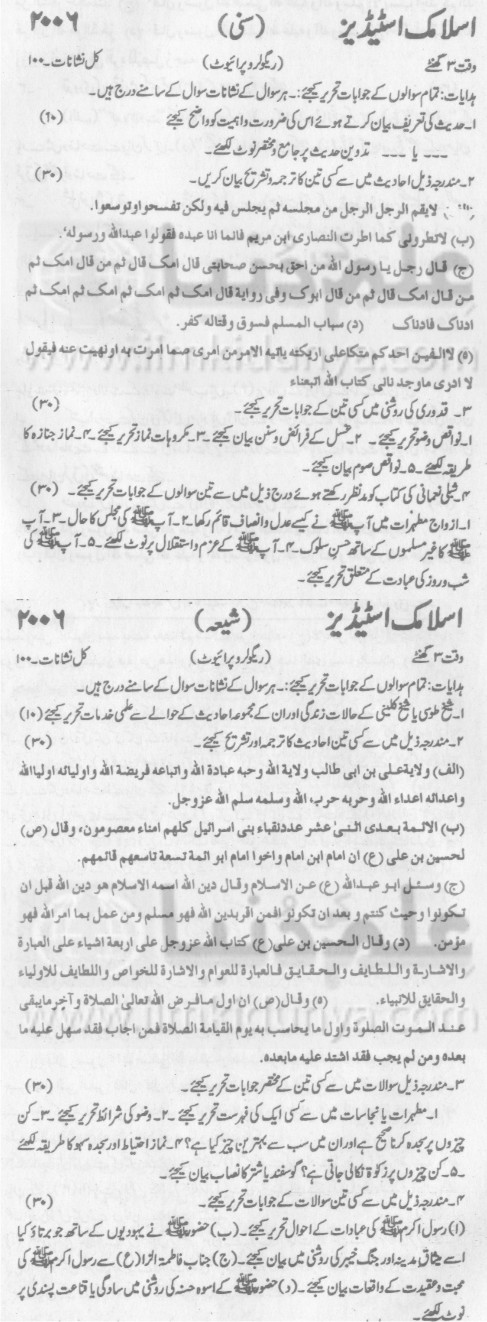 اسلامک اسٹیڈیز (سنی) ۲۰۰۶
وقت ۳ گھنٹے (ریگولر و پرائیوٹ) کل نشانات۔۱۰۰
ہدایات: تمام سوالوں کے جوابات تحریر کیجئے:۔ ہر سوال کے نشانات سوال کے سامنے درج ہیں۔
۱۔ حدیث کی تعریف بیان کرتے ہوئے اس کی ضرورت و اہمیت کو واضح کیجئے (۱۰)
۔۔۔ یا ۔۔۔ تدوین حدیث پر جامع و مختصر نوٹ لکھئے۔
۲۔ مندرجہ ذیل احادیث میں سے کسی تین کا ترجمہ و تشریح بیان کریں۔ (۳۰)
لا یقم الرجل الرجل من مجلسه ثم یجلس فیه ولکن تفسحوا و توسعوا.
(ب) لاتطرونی کما اطرت النصاری ابن مریم فانما انا عبده فقولوا عبدالله ورسوله'.
(ج) قال رجل یا رسول الله من احق بحسن صحابتی قال امک قال ثم من قال امک ثم
من قال امک قال ثم من قال ابوک وفی روایة قال امک ثم امک ثم امک ثم امک ثم
ادناک فادناک (د) سباب المسلم فسوق وقتاله کفر.
(ه) لا الفین احدکم متکاعلی اریکته یاتیه الامر من امری مما امرت به اونهیت عنه فیقول
لا ادری ماوجدنا فی کتاب الله اتبعناء
۳۔ قدوری کی روشنی میں کسی تین کے جوابات تحریر کیجئے۔ (۳۰)
۱۔ نواقض وضو تحریر کیجئے۔ ۲۔ غسل کے فرائض و سنن بیان کیجئے۔ ۳۔ مکروہات نماز تحریر کیجئے۔ ۴۔ نماز جنازہ کا
طریقہ لکھئے۔ ۵۔ نواقض صوم بیان کیجئے۔
۴۔ شبلی نعمانی کی کتاب کو مدنظر رکھتے ہوئے درج ذیل میں سے تین سوالوں کے جوابات تحریر کیجئے۔ (۳۰)
۱۔ ازواج مطہرات میں آپ ﷺ نے کیسے عدل و انصاف قائم رکھا۔ ۲۔ آپ ﷺ کی مجلس کا حال۔ ۳۔ آپ
ﷺ کا غیر مسلموں کے ساتھ حسن سلوک۔ ۴۔ آپ ﷺ کے عزم و استقلال پر نوٹ لکھئے۔ ۵۔ آپ ﷺ کی
شب و روز کی عبادت کے متعلق تحریر کیجئے۔
اسلامک اسٹیڈیز (شیعہ) ۲۰۰۶
وقت ۳ گھنٹے (ریگولر و پرائیوٹ) کل نشانات۔۱۰۰
ہدایات: تمام سوالوں کے جوابات تحریر کیجئے:۔ ہر سوال کے نشانات سوال کے سامنے درج ہیں۔
۱۔ شیخ طوسی یا شیخ کلینی کے حالات زندگی اور ان کے مجموعہ احادیث کے حوالے سے علمی خدمات تحریر کیجئے (۱۰)
۲۔ مندرجہ ذیل میں سے کسی تین احادیث کا ترجمہ اور تشریح کیجئے۔ (۳۰)
(الف) ولایة علی بن ابی طالب ولایة الله وحبه عبادة الله واتباعه فریضة الله واولیائه اولیاالله
واعدائه اعداء الله وحربه حرب، الله وسلمه سلم الله عزوجل.
(ب) الائمة بعدی اثنی عشر عددنقباء بنی اسرائیل کلهم امناء معصومون، وقال (ص)
لحسین بن علی (ع) ان امام ابن امام واخوا امام ابو ائمة تسعة تاسعهم قائمهم.
(ج) وسئل ابو عبدالله (ع) عن الاسلام وقال دین الله اسمه الاسلام هو دین الله قبل ان
تکونوا وحیث کنتم و بعد ان تکونو افمن اقربدین الله فهو مسلم ومن عمل بما امرالله فهو
مؤمن. (د) وقال الحسین بن علی (ع) کتاب الله عزوجل علی اربعة اشیاء علی العبارة
والاشارة واللطایف والحقایق فالعبارة للعوام والاشارة للخواص واللطایف للاولیاء
والحقایق للانبیاء. (ه) وقال (ص) ان اول مافرض الله تعالیٰ الصلاة وآخر مایبقی
عند الموت الصلوة واول ما یحاسب به یوم القیامة الصلاة فمن اجاب فقد سهل علیه ما
بعده ومن لم یجب فقد اشتد علیه مابعده.
۳۔ مندرجہ ذیل سوالات میں سے کسی تین کے مختصر جوابات تحریر کیجئے۔ (۳۰)
۱۔ مطہرات یا نجاسات میں سے کسی ایک کی فہرست تحریر کیجئے۔ ۲۔ وضو کی شرائط تحریر کیجئے۔ ۳۔ کن
چیزوں پر سجدہ کرنا صحیح ہے اور ان میں سب سے بہترین چیز کیا ہے؟ ۴۔ نماز احتیاط اور سجدہ سہو کا طریقہ لکھئے
۔۵۔ کن چیزوں پر زکوٰۃ نکالی جاتی ہے؟ گوسفند یا شتر کا نصاب بیان کیجئے۔
۴۔ مندرجہ ذیل میں سے کسی تین سوالات کے جوابات تحریر کیجئے۔ (۳۰)
(۱) رسول اکرم ﷺ کی عبادات کے احوال تحریر کیجئے۔ (ب) حضور ﷺ نے یہودیوں کے ساتھ جو برتاؤ کیا
اسے میثاق مدینہ اور جنگ خیبر کی روشنی میں بیان کیجئے۔ (ج) جناب فاطمۃ الزا (ع) سے رسول اکرم ﷺ کی
محبت و عقیدت کے واقعات بیان کیجئے۔ (د) حضور ﷺ کے اسوہ حسنہ کی روشنی میں سادگی یا قناعت پسندی پر
نوٹ لکھئے۔
علم کی دنیا
www.ilmkidunya.com
علم کی دنیا
www.ilmkidunya.com